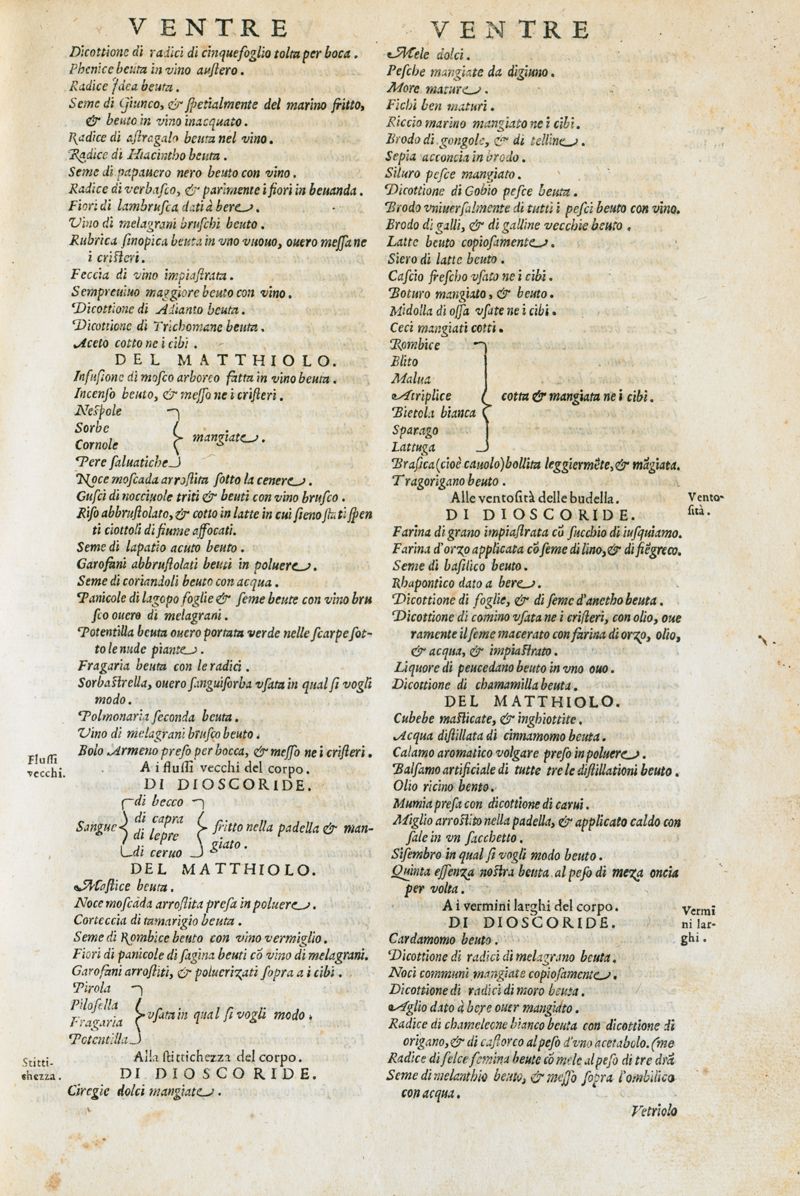 VENTRE
Dicottione di radici di cinquefoglio tolta per boca.
Phenice beuta in vino austero.
Radice Idea beuta.
Seme di Giunco, & spetialmente del marino fritto,
& beuto in vino inacquato.
Radice di astragalo beuta nel vino.
Radice di Hiacintho beuta.
Seme di papauero nero beuto con vino.
Radice di verbasco, & parimente i fiori in beuanda.
Fiori di lambrusca dati à bere.
Vino di melagrani bruschi beuto.
Rubrica sinopica beuta in vno vuouo, ouero messa ne
i cristeri.
Feccia di vino impiastrata.
Sempreuiuo maggiore beuto con vino.
Dicottione di Adianto beuta.
Dicottione di Trichomane beuta.
Aceto cotto ne i cibi.
DEL MATTHIOLO.
Infusione di mosco arboreo fatta in vino beuta.
Incenso beuto, & messo ne i cristeri.
Nespole
Sorbe
Cornole
Pere saluatiche
mangiate.
Noce moscada arrostita sotto la cenere.
Gusci di nocciuole triti & beuti con vino brusco.
Riso abbrustolato, & cotto in latte in cui sieno stati spen
ti ciottoli di fiume affocati.
Seme di lapatio acuto beuto.
Garofani abbrustolati beuti in poluere.
Seme di coriandoli beuto con acqua.
Panicole di lagopo foglie & seme beute con vino bru
sco ouero di melagrani.
Potentilla beuta ouero portata verde nelle scarpe sot-
to le nude piante.
Fragaria beuta con le radici.
Sorbastrella, ouero sanguisorba vsata in qual si vogli
modo.
Polmonaria seconda beuta.
Vino di melagrani brusco beuto.
Bolo Armeno preso per bocca, & messo ne i cristeri.
Flussi
vecchi.
A i flussi vecchi del corpo.
DI DIOSCORIDE.
Sangue
di becco
di capra
di lepre
di ceruo
fritto nella padella & man-
giato.
DEL MATTHIOLO.
Mastice beuta.
Noce moscada arrostita presa in poluere.
Corteccia di tamarigio beuta.
Seme di Rombice beuto con vino vermiglio.
Fiori di panicole di sagina beuti cō vino di melagrani.
Garofani arrostiti, & poluerizati sopra a i cibi.
Pirola
Pilosella
Fragaria
Potentilla
vsata in qual si vogli modo.
Stitti-
chezza.
Alla stittichezza del corpo.
DI DIOSCORIDE.
Ciregie dolci mangiate.
VENTRE
Mele dolci.
Pesche mangiate da digiuno.
More mature.
Fichi ben maturi.
Riccio marino mangiato ne i cibi.
Brodo di gongole, & di telline.
Sepia acconcia in brodo.
Siluro pesce mangiato.
Dicottione di Gobio pesce beuta.
Brodo vniuersalmente di tutti i pesci beuto con vino.
Brodo di galli, & di galline vecchie beuto.
Latte beuto copiosamente.
Siero di latte beuto.
Cascio frescho vsato ne i cibi.
Boturo mangiato, & beuto.
Midolla di ossa vsate ne i cibi.
Ceci mangiati cotti.
Rombice
Blito
Malua
Atriplice
Bietola bianca
Sparago
Lattuga
cotta & mangiata ne i cibi.
Brasica (cioè cauolo) bollita leggiermēte, & māgiata.
Tragorigano beuto.
Alle ventosità delle budella.
Vento-
sità.
DI DIOSCORIDE.
Farina di grano impiastrata cō succhio di iusquiamo.
Farina d'orzo applicata cō seme di lino, & di fiēgreco.
Seme di basilico beuto.
Rhapontico dato a bere.
Dicottione di foglie, & di seme d'anetho beuta.
Dicottione di comino vsata ne i cristeri, con olio, oue
ramente il seme macerato con farina di orzo, olio,
& acqua, & impiastrato.
Liquore di peucedano beuto in vno ouo.
Dicottione di chamamilla beuta.
DEL MATTHIOLO.
Cubebe masticate, & inghiottite.
Acqua distillata di cinnamomo beuta.
Calamo aromatico volgare preso in poluere.
Balsamo artificiale di tutte tre le distillationi beuto.
Olio ricino bento.
Mumia presa con dicottione di carui.
Miglio arrostito nella padella, & applicato caldo con
sale in vn sacchetto.
Sisembro in qual si vogli modo beuto.
Quinta essenza nostra beuta al peso di meza oncia
per volta.
A i vermini larghi del corpo.
Vermi
ni lar-
ghi.
DI DIOSCORIDE.
Cardamomo beuto.
Dicottione di radici di melagrano beuta.
Noci communi mangiate copiosamente.
Dicottione di radici di moro beuta.
Aglio dato à bere ouer mangiato.
Radice di chameleone bianco beuta con dicottione di
origano, & di castorco al peso d'vno acetabolo. (me
Radice di felce femina beute cō mele al peso di tre drā
Seme di melanthio beuto, & messo sopra l'ombilico
con acqua.
Vetriolo